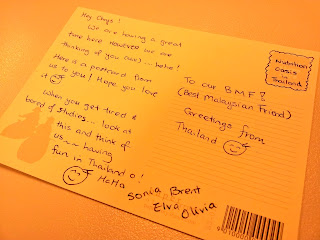 Hey Oings!
We are having a great
time here HOWEVER we are
thinking of you (aw)... hehe!
Here is a postcard from
us to you! Hope you love
it
When you get tired &
bored of studies... look at
this and think of
us~~ having
fun in Thailand!
HaHa
Sonia Brent
Elva Olivia
Nutrition
Oasis
in
Thailand
To our BMF!
(Best Malaysian Friend)
Greetings from
Thailand